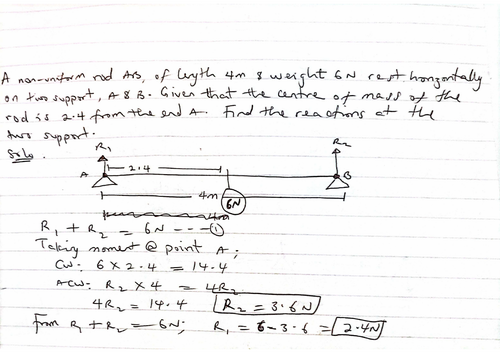 A non-uniform rod AB, of length 4m & weight 6N rest horizontally
on two support, A & B. Given that the centre of mass of the
rod is 2.4 from the end A. Find the reactions at the
two support.
Soln.
R₁ R₂
2.4
A B
4m
6N
4m
R₁ + R₂ = 6N --- ①
Taking moment @ point A;
CW: 6 × 2.4 = 14.4
ACW: R₂ × 4 = 4R₂
4R₂ = 14.4 R₂ = 3.6N
From R₁ + R₂ = 6N; R₁ = 6 - 3.6 = 2.4N